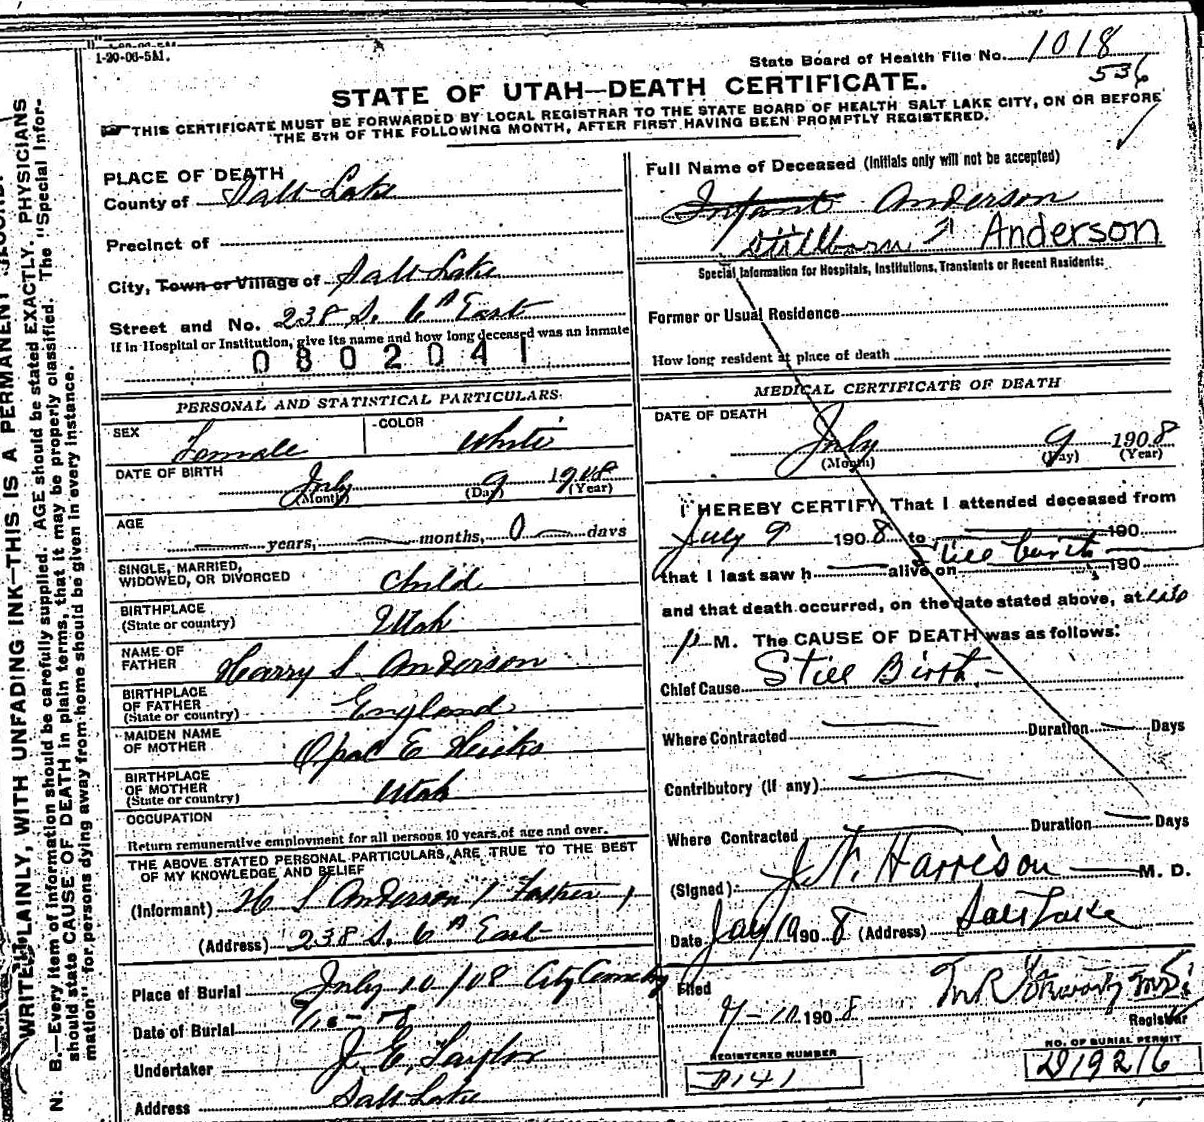 1-20-06-5M.
State Board of Health File No. 1018
536
STATE OF UTAH—DEATH CERTIFICATE.
THIS CERTIFICATE MUST BE FORWARDED BY LOCAL REGISTRAR TO THE STATE BOARD OF HEALTH SALT LAKE CITY, ON OR BEFORE
THE 5TH OF THE FOLLOWING MONTH, AFTER FIRST HAVING BEEN PROMPTLY REGISTERED.
WRITE PLAINLY, WITH UNFADING INK—THIS IS A PERMANENT
N. B.—Every item of information should be carefully supplied. AGE should be stated EXACTLY. PHYSICIANS
should state CAUSE OF DEATH in plain terms, that it may be properly classified. The "Special Infor-
mation" for persons dying away from home should be given in every instance.
PLACE OF DEATH
County of Salt Lake
Precinct of
City, Town or Village of Salt Lake
Street and No. 238 S. 6th East
If in Hospital or Institution, give its name and how long deceased was an inmate
0802041
PERSONAL AND STATISTICAL PARTICULARS
SEX Female COLOR White
DATE OF BIRTH July 9 1908
(Month) (Day) (Year)
AGE
years, months, 0 days
SINGLE, MARRIED,
WIDOWED, OR DIVORCED Child
BIRTHPLACE
(State or country) Utah
NAME OF
FATHER Harry S. Anderson
BIRTHPLACE
OF FATHER
(State or country) England
MAIDEN NAME
OF MOTHER Opal E
BIRTHPLACE
OF MOTHER
(State or country) Utah
OCCUPATION
Return remunerative employment for all persons 10 years of age and over.
THE ABOVE STATED PERSONAL PARTICULARS, ARE TRUE TO THE BEST
OF MY KNOWLEDGE AND BELIEF
(Informant) H S Anderson (Father)
(Address) 238 S. 6th East
Place of Burial July 10/08 City Cemetery
Date of Burial 7/10-08
Undertaker J. E. Taylor
Address Salt Lake
Full Name of Deceased (Initials only will not be accepted)
Infant Anderson
Stillborn Anderson
Special Information for Hospitals, Institutions, Transients or Recent Residents:
Former or Usual Residence
How long resident at place of death
MEDICAL CERTIFICATE OF DEATH
DATE OF DEATH
July 9 1908
(Month) (Day) (Year)
I HEREBY CERTIFY, That I attended deceased from
July 9 1908 to 190
that I last saw h alive on Still birth 190
and that death occurred, on the date stated above, at
p M. The CAUSE OF DEATH was as follows:
Chief Cause Still Birth.
Where Contracted Duration Days
Contributory (if any)
Where Contracted Duration Days
(Signed) Harrison M. D.
Date 1908 (Address) Salt Lake
Filed
7-10 1908
Registrar
REGISTERED NUMBER
D141
NO. OF BURIAL PERMIT
D19216